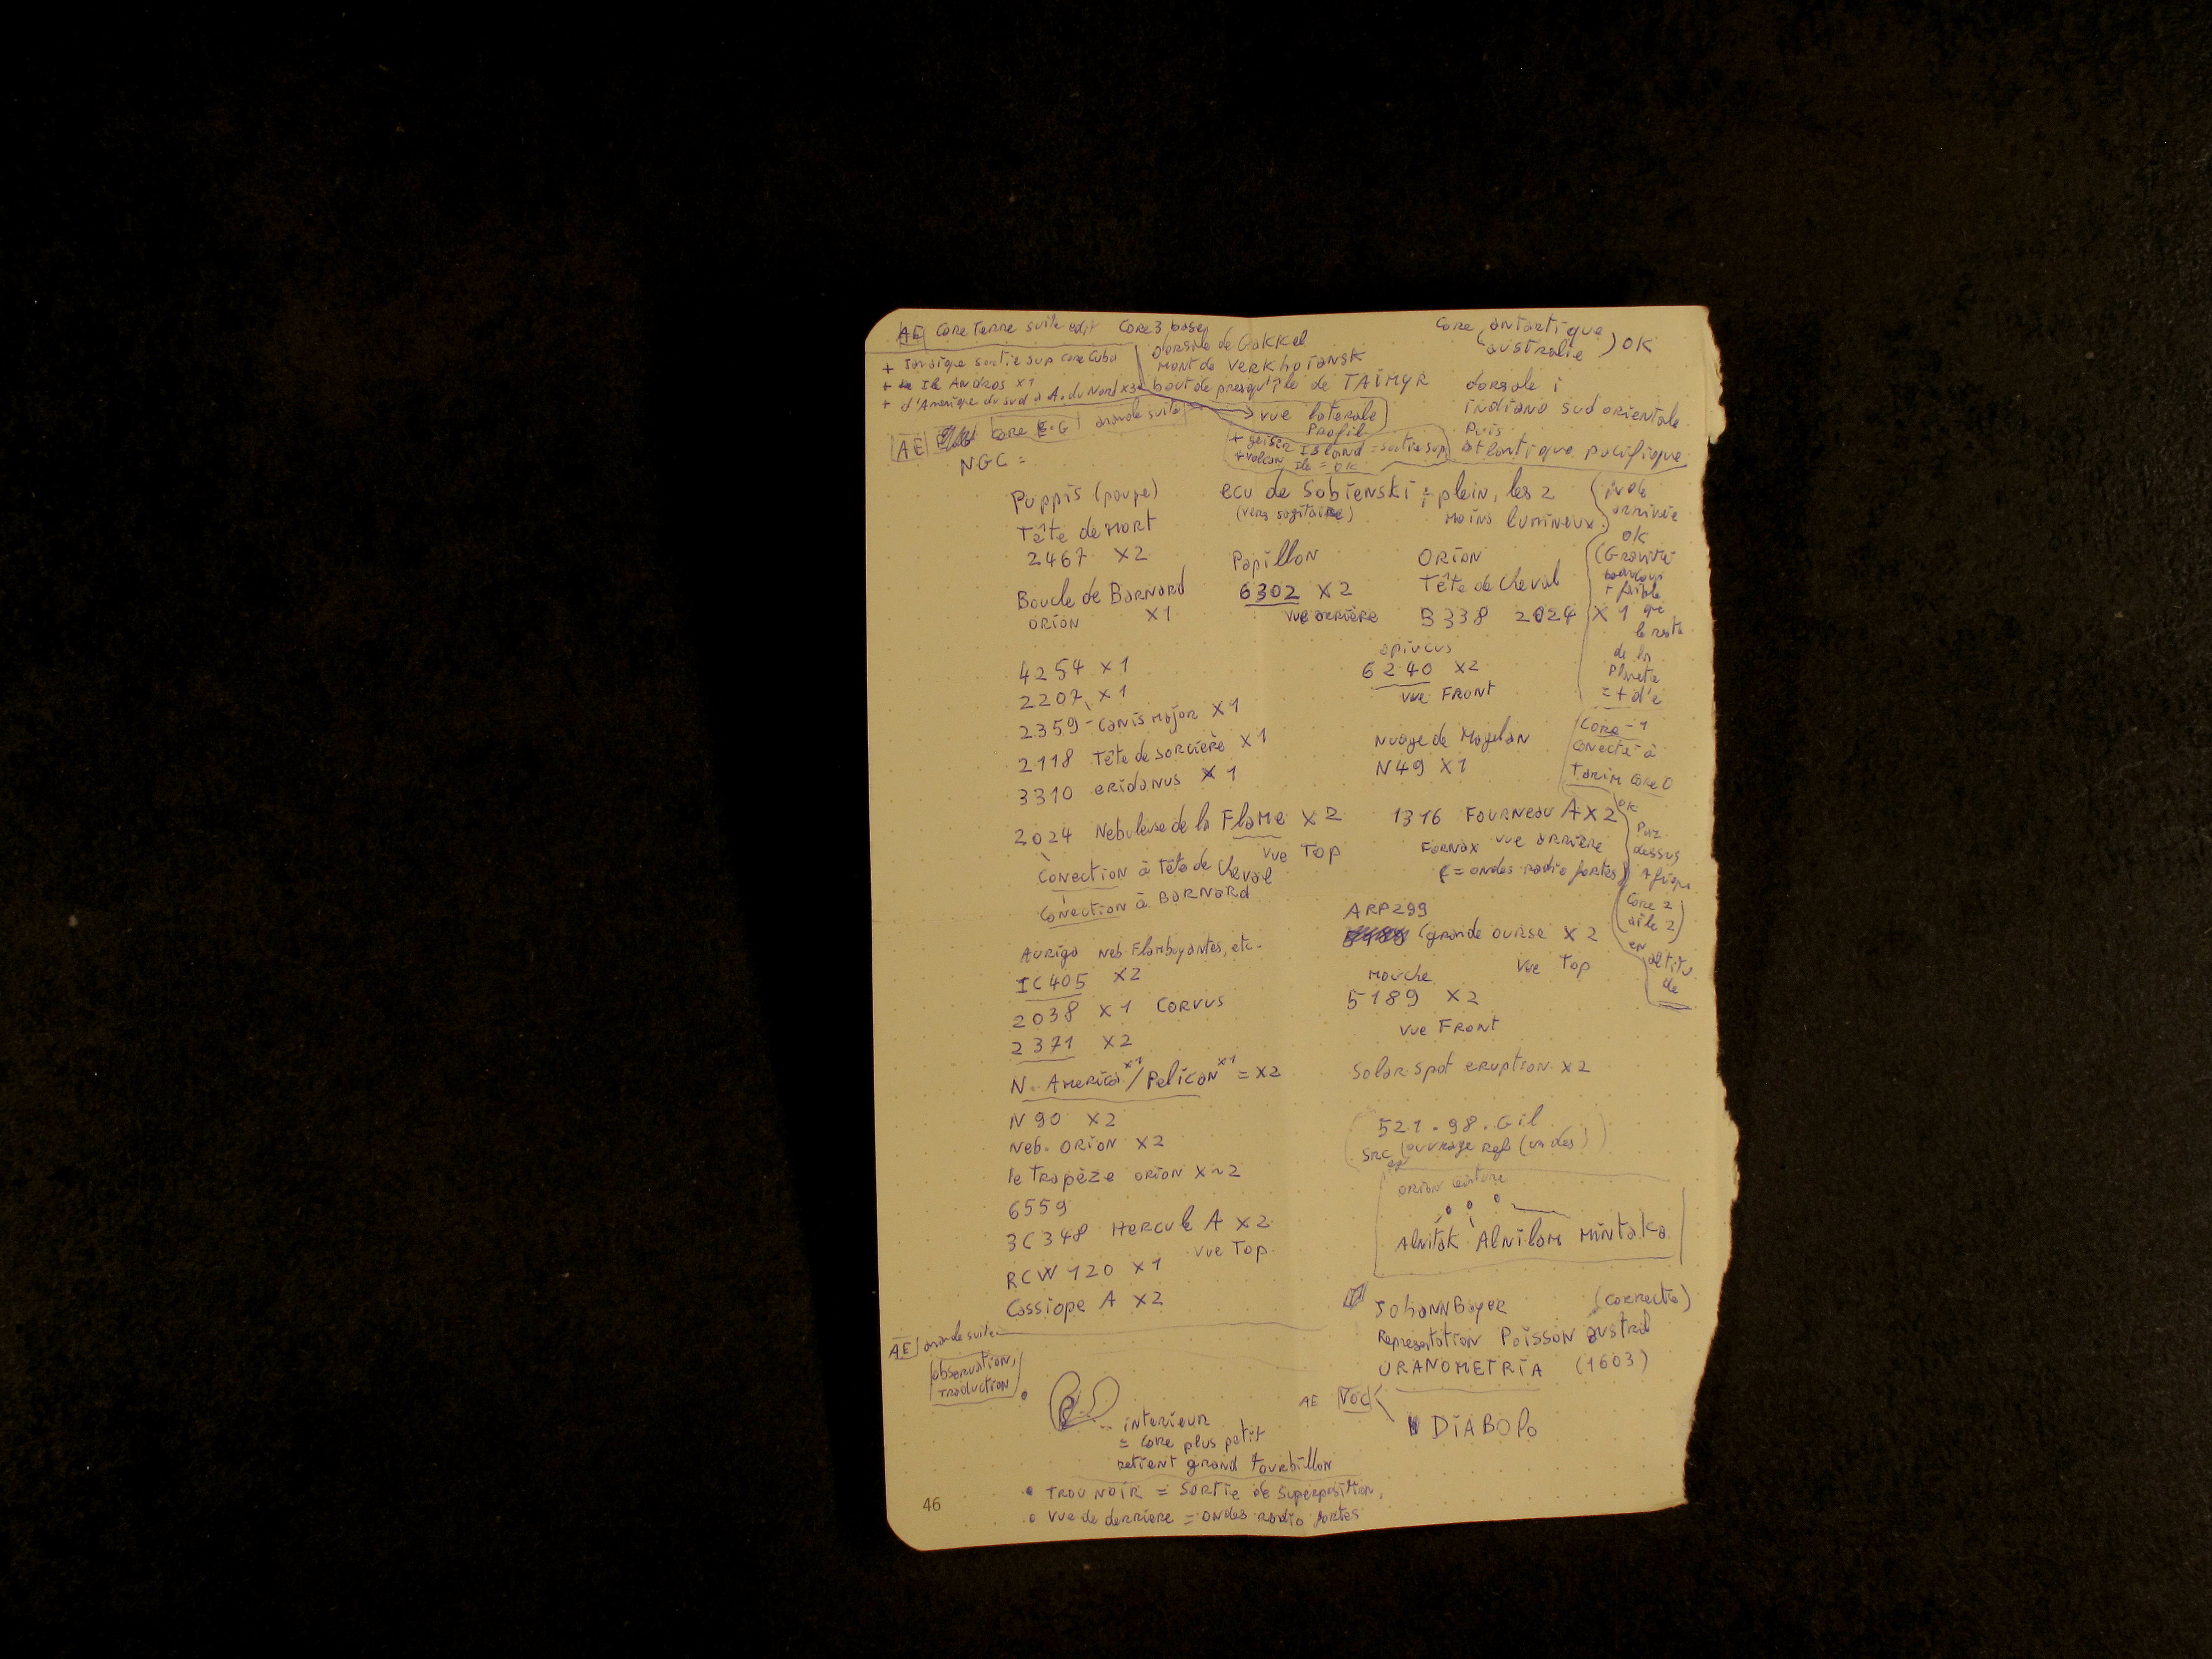 AE Core Terre suite edit Core 3 base
+ sortie sup core Cuba
+ Ile Andros x1
+ d'Amerique du sud à A. du Nord x3
Dorsale de Gakkel
Mont de Verkhoiansk
bout de presqu'île de TAÏMYR
vue laterale
Profil
+ geiser Island = sortie sup
+ volcan Ile = OK
Core (antartique
australie) OK
dorsale
indiano sud orientale
Puis
atlantique pacifique
AE Core E.G grande suite
NGC =
Puppis (poupe)
Tête de Mort
2467 x2
Boucle de Barnard
Orion x1
4254 x1
2207 x1
2359 - Canis Major x1
2118 Tête de sorcière x1
3310 eridanus x1
2024 Nebuleuse de la Flame x2
vue Top
Conection à Tête de cheval
Conection à Barnard
Auriga Neb. Flamboyantes, etc.
IC405 x2
2038 x1 Corvus
2371 x2
N. America x1 / Pelican x1 = x2
N90 x2
Neb. Orion x2
le Trapèze Orion x~2
6559
3C348 Hercule A x2
vue Top
RCW 120 x1
Cassiope A x2
ecu de Sobienski : plein, les 2
(vers sagitaire) moins lumineux
Papillon
6302 x2
vue arrière
Orion
Tête de cheval
B338 2024 x1
opiucus
6240 x2
vue FRONT
Nuage de Magelan
N49 x1
1316 Fourneau A x2
Fornax vue arrière
(= ondes radio fortes)
ARP299
grande ourse x2
vue Top
Mouche
5189 x2
vue Front
Solar spot eruption x2
521.98.Gil
Src ouvrage ref
Orion ceinture
Alnitak Alnilam Mintaka
arrivée
OK
(Gravité
beaucoup
+ faible
que
le reste
de la
Planete
= + d'e
Core -1
Conecté à
Tarim Core 0
OK
dessus
Core 2
aile 2
en
altitu
de
Johann Bayer (correcte)
Representation Poisson austral
URANOMETRIA (1603)
AE VOC
DIABOLO
AE grande suite
observation,
traduction
interieur
= core plus petit
retient grand tourbillon
• TROU NOIR = Sortie de superposition,
• vue de derriere = ondes radio fortes
46